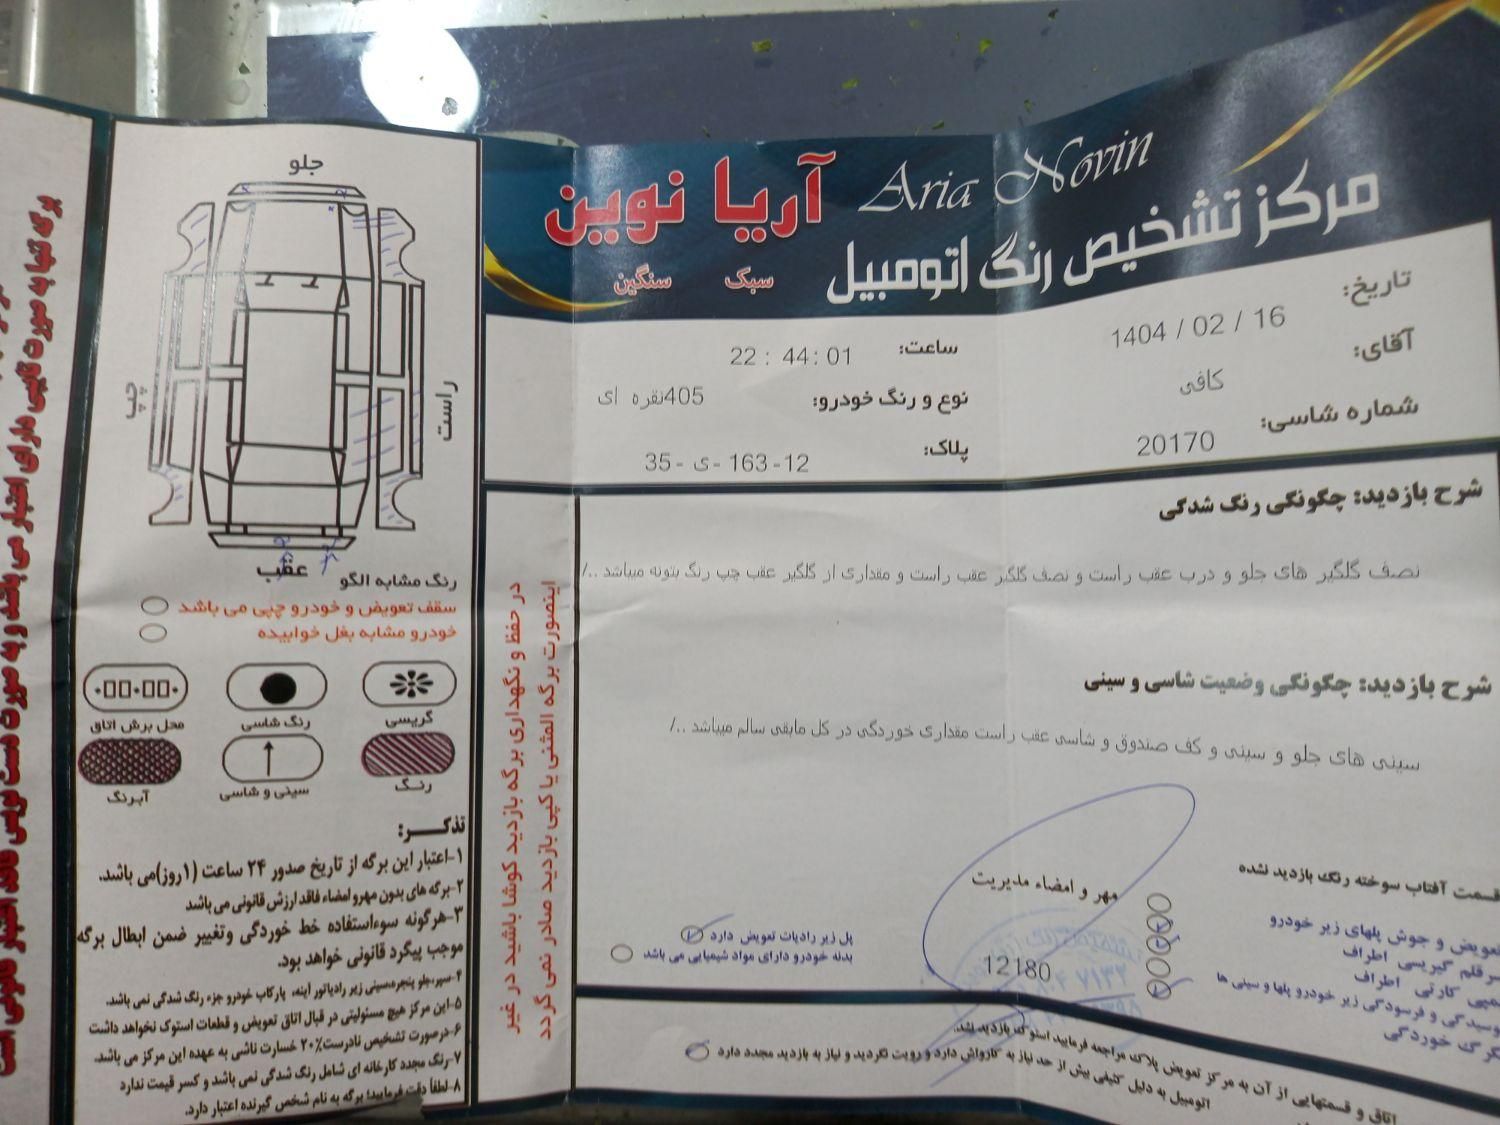 Aria Novin
آریا نوین
سبک سنگین
مرکز تشخیص رنگ اتومبیل
تاریخ: 1404 / 02 / 16
ساعت: 22 : 44 : 01
آقای: کافی
نوع و رنگ خودرو: 405نقره ای
شماره شاسی: 20170
پلاک: 35 - ی - 163 - 12
شرح بازدید: چگونگی رنگ شدگی
نصف گلگیر های جلو و درب عقب راست و نصف گلگیر عقب راست و مقداری از گلگیر عقب چپ رنگ بتونه میباشد ../
شرح بازدید: چگونگی وضعیت شاسی و سینی
سینی های جلو و سینی و کف صندوق و شاسی عقب راست مقداری خوردگی در کل مابقی سالم میباشد ../
قسمت آفتاب سوخته رنگ بازدید نشده
تعویض و جوش پلهای زیر خودرو
سرقلم گیریسی اطراف
لمپی کارتی اطراف
پوسیدگی و فرسودگی زیر خودرو پلها و سینی ها
خوردگی
مهر و امضاء مدیریت
12180
پل زیر رادیات تعویض دارد
بدنه خودرو دارای مواد شیمیایی می باشد
اتاق و قسمتهایی از آن به مرکز تعویض پلاک مراجعه فرمایید استوک بازدید نشد.
اتومبیل به دلیل کثیفی بیش از حد نیاز به کارواش دارد و رویت نگردید و نیاز به بازدید مجدد دارد
در حفظ و نگهداری برگه بازدید کوشا باشید در غیر
اینصورت برگه المثنی یا کپی بازدید صادر نمی گردد
جلو
چپ
راست
عقب
رنگ مشابه الگو
سقف تعویض و خودرو چپی می باشد
خودرو مشابه بغل خوابیده
گریسی
رنگ شاسی
محل برش اتاق
رنگ
سینی و شاسی
آبرنگ
تذکر:
۱-اعتبار این برگه از تاریخ صدور ۲۴ ساعت (۱روز)می باشد.
۲-برگه های بدون مهر و امضاء فاقد ارزش قانونی می باشد
۳-هرگونه سوءاستفاده خط خوردگی وتغییر ضمن ابطال برگه
موجب پیگرد قانونی خواهد بود.
۴-سپر،جلو پنجره،سینی زیر رادیاتور آینه، پارکاب خودرو جزء رنگ شدگی نمی باشد.
۵-این مرکز هیچ مسئولیتی در قبال اتاق تعویض و قطعات استوک نخواهد داشت
۶-درصورت تشخیص نادرست۲۰٪ خسارت ناشی به عهده این مرکز می باشد.
۷-رنگ مجدد کارخانه ای شامل رنگ شدگی نمی باشد و کسر قیمت ندارد
۸-لطفاً دقت فرمایید! برگه به نام شخص گیرنده اعتبار دارد.
برگه تنها به صورت تایپی دارای اعتبار می باشد و به صورت دست نویس فاقد اعتبار قانونی است